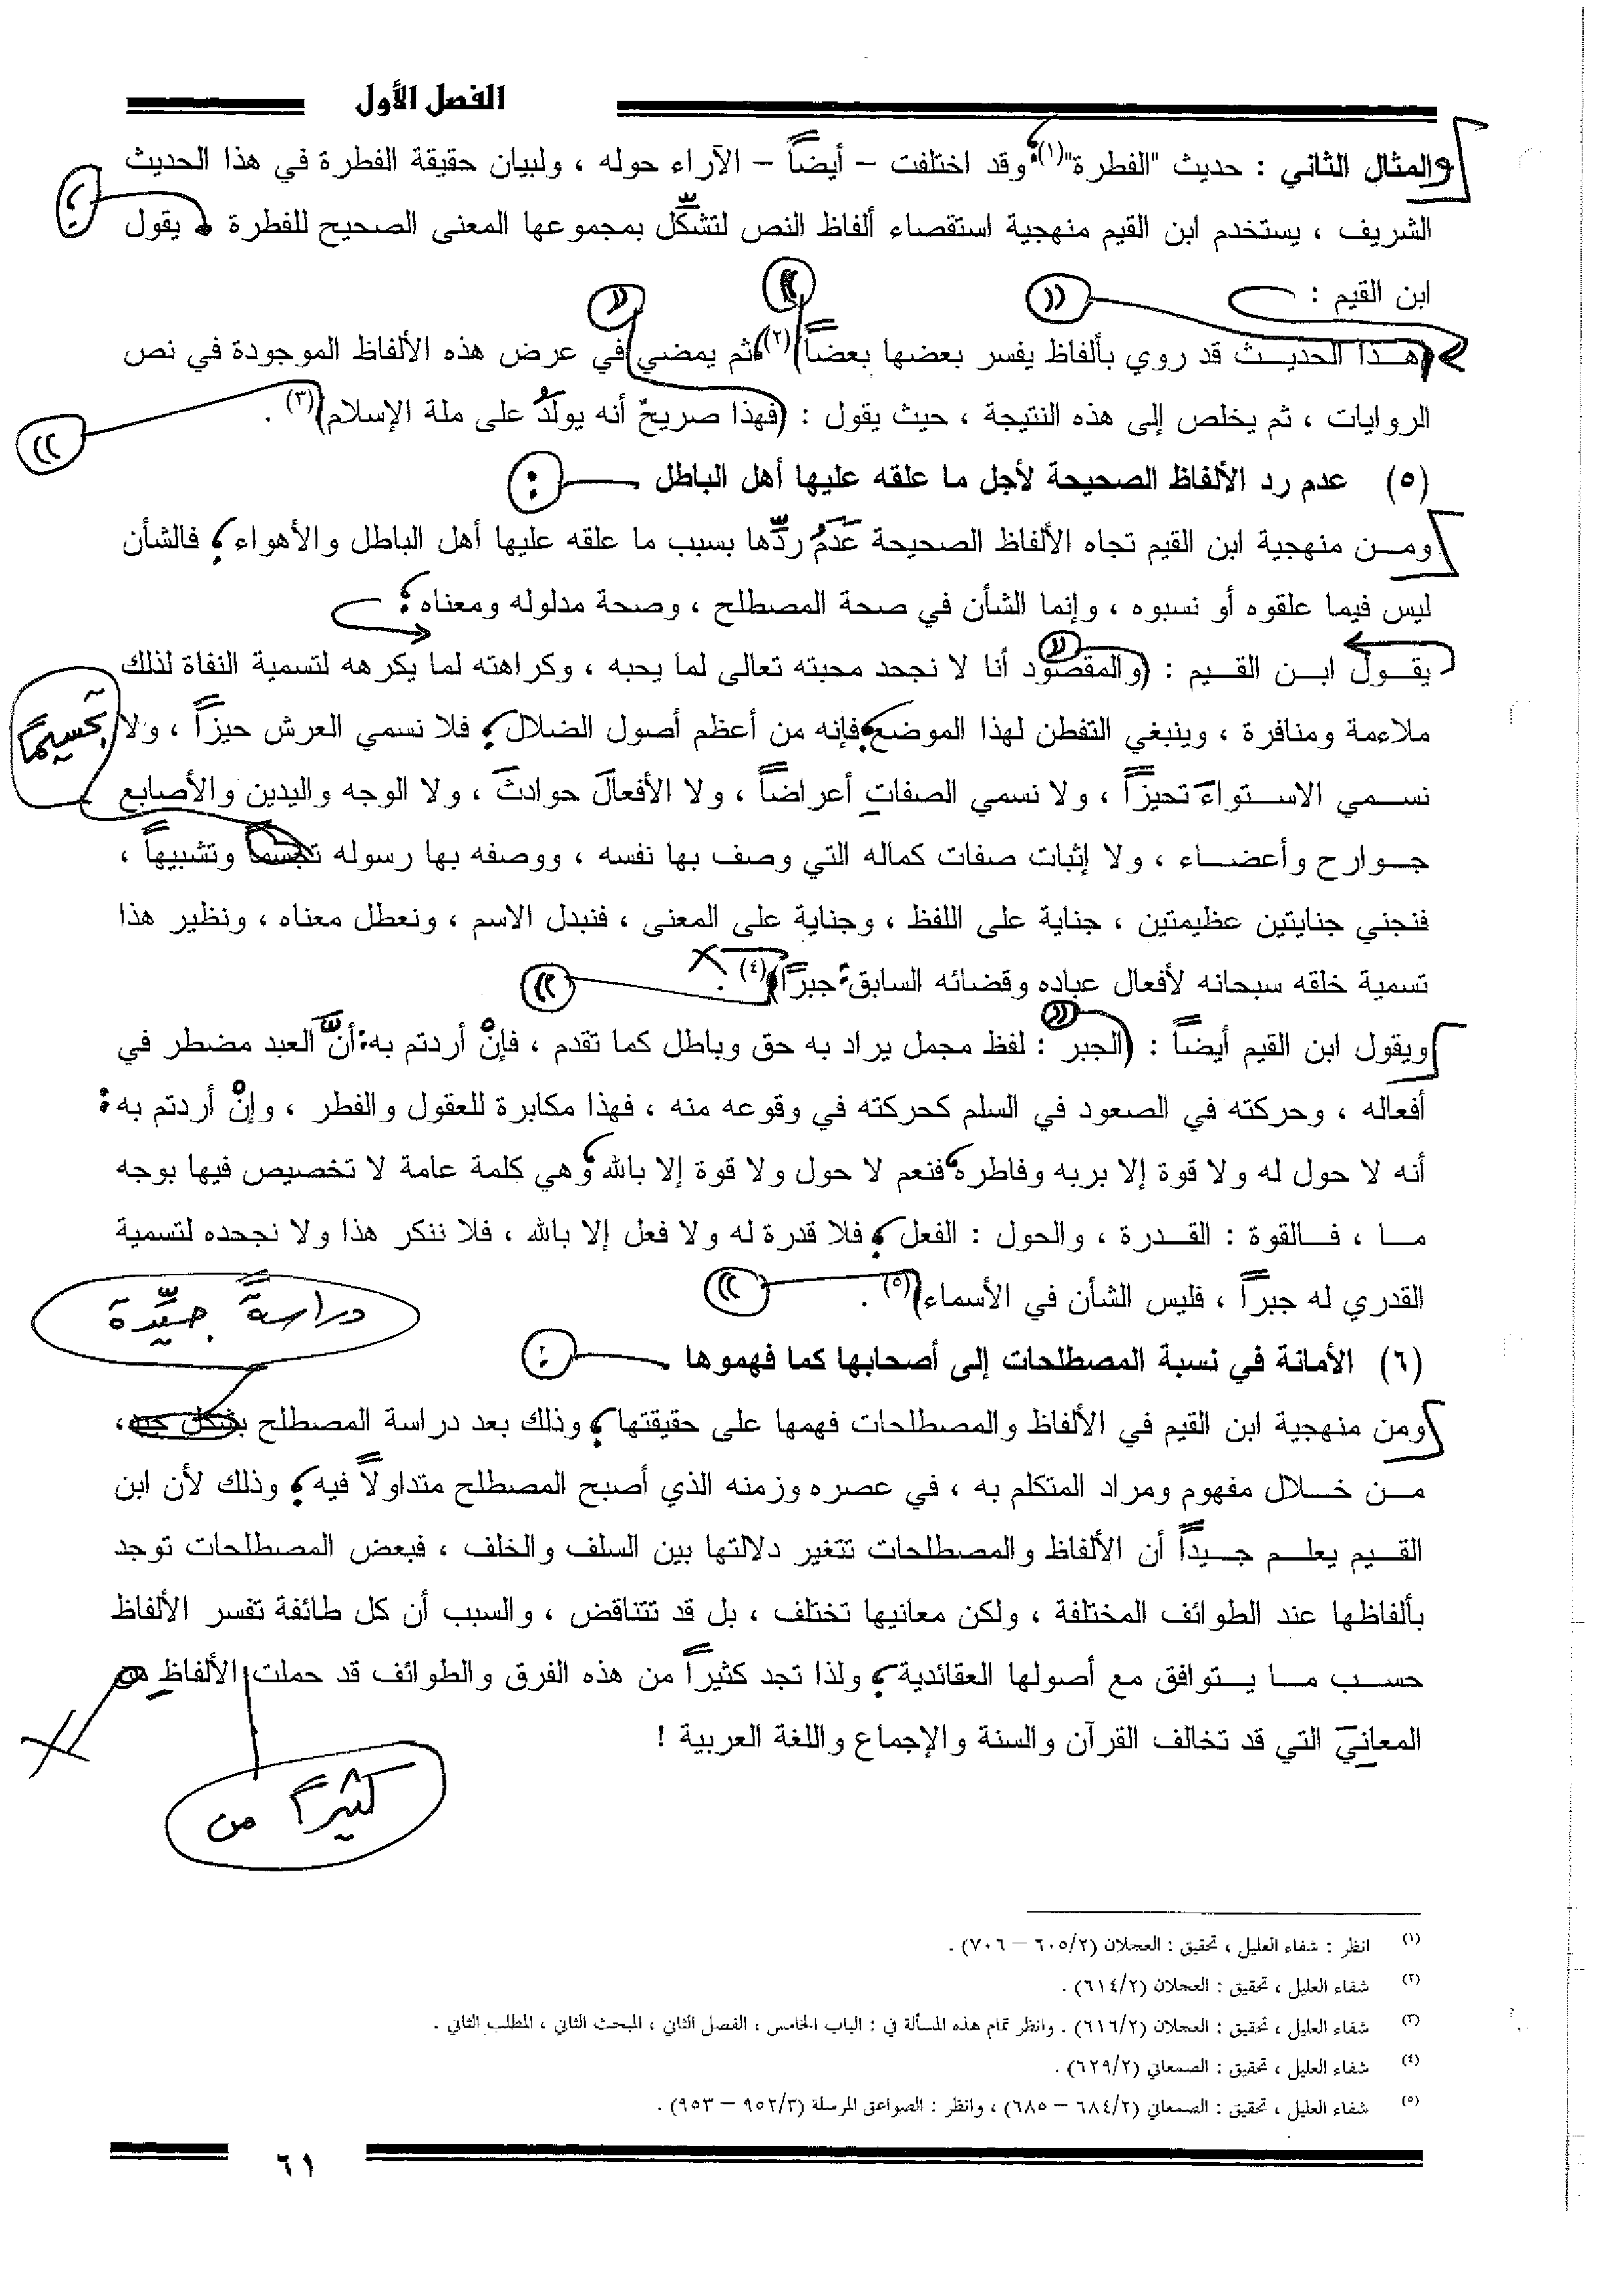 الفصل الأول
والمثال الثاني : حديث "الفطرة"(١) وقد اختلفت – أيضاً – الآراء حوله ، ولبيان حقيقة الفطرة في هذا الحديث
الشريف ، يستخدم ابن القيم منهجية استقصاء ألفاظ النص لتشكّل بمجموعها المعنى الصحيح للفطرة ؛ يقول
ابن القيم :
(هـذا الحديـث قد روي بألفاظ يفسر بعضها بعضاً)(٢) ثم يمضي في عرض هذه الألفاظ الموجودة في نص
الروايات ، ثم يخلص إلى هذه النتيجة ، حيث يقول : (فهذا صريحٌ أنه يولدُ على ملة الإسلام)(٣) .
(٥) عدم رد الألفاظ الصحيحة لأجل ما علقه عليها أهل الباطل :
ومـن منهجية ابن القيم تجاه الألفاظ الصحيحة عَدَمُ ردّها بسبب ما علقه عليها أهل الباطل والأهواء ؛ فالشأن
ليس فيما علقوه أو نسبوه ، وإنما الشأن في صحة المصطلح ، وصحة مدلوله ومعناه :
يقـول ابـن القـيم : (والمقصود أنا لا نجحد محبته تعالى لما يحبه ، وكراهته لما يكرهه لتسمية النفاة لذلك
ملاءمة ومنافرة ، وينبغي التفطن لهذا الموضع؛ فإنه من أعظم أصول الضلال؛ فلا نسمي العرش حيزاً ، ولا
تجسيماً
نسـمي الاسـتواءَ تحيزاً ، ولا نسمي الصفاتِ أعراضاً ، ولا الأفعالَ حوادثَ ، ولا الوجه واليدين والأصابع
جـوارح وأعضـاء ، ولا إثبات صفات كماله التي وصف بها نفسه ، ووصفه بها رسوله تجسماً وتشبيهاً ،
فنجني جنايتين عظيمتين ، جناية على اللفظ ، وجناية على المعنى ، فنبدل الاسم ، ونعطل معناه ، ونظير هذا
تسمية خلقه سبحانه لأفعال عباده وقضائه السابق: جبراً)(٤) .
ويقول ابن القيم أيضاً : (الجبر : لفظ مجمل يراد به حق وباطل كما تقدم ، فإنْ أردتم به: أنَّ العبد مضطر في
أفعاله ، وحركته في الصعود في السلم كحركته في وقوعه منه ، فهذا مكابرة للعقول والفطر ، وإنْ أردتم به :
أنه لا حول له ولا قوة إلا بربه وفاطره، فنعم لا حول ولا قوة إلا بالله، وهي كلمة عامة لا تخصيص فيها بوجه
مـا ، فـالقوة : القـدرة ، والحول : الفعل ؛ فلا قدرة له ولا فعل إلا بالله ، فلا ننكر هذا ولا نجحده لتسمية
القدري له جبراً ، فليس الشأن في الأسماء)(٥) .
دراسةً جيِّدة
(٦) الأمانة في نسبة المصطلحات إلى أصحابها كما فهموها :
ومن منهجية ابن القيم في الألفاظ والمصطلحات فهمها على حقيقتها ؛ وذلك بعد دراسة المصطلح بشكل جيد،
مـن خـلال مفهوم ومراد المتكلم به ، في عصره وزمنه الذي أصبح المصطلح متداولاً فيه ؛ وذلك لأن ابن
القـيم يعلـم جـيداً أن الألفاظ والمصطلحات تتغير دلالتها بين السلف والخلف ، فبعض المصطلحات توجد
بألفاظها عند الطوائف المختلفة ، ولكن معانيها تختلف ، بل قد تتناقض ، والسبب أن كل طائفة تفسر الألفاظ
حسـب مـا يـتوافق مع أصولها العقائدية ؛ ولذا تجد كثيراً من هذه الفرق والطوائف قد حملت الألفاظِ من
المعانيَ التي قد تخالف القرآن والسنة والإجماع واللغة العربية !
كثيراً من
(١) انظر : شفاء العليل ، تحقيق : العجلان (٦٠٥/٢ – ٧٠٦) .
(٢) شفاء العليل ، تحقيق : العجلان (٦١٤/٢) .
(٣) شفاء العليل ، تحقيق : العجلان (٦١٦/٢) . وانظر تمام هذه المسألة في : الباب الخامس ، الفصل الثاني ، المبحث الثاني ، المطلب الثاني .
(٤) شفاء العليل ، تحقيق : الصمعاني (٦٢٩/٢) .
(٥) شفاء العليل ، تحقيق : الصمعاني (٦٨٤/٢ – ٦٨٥) ، وانظر : الصواعق المرسلة (٩٥٢/٣ – ٩٥٣) .
٦١